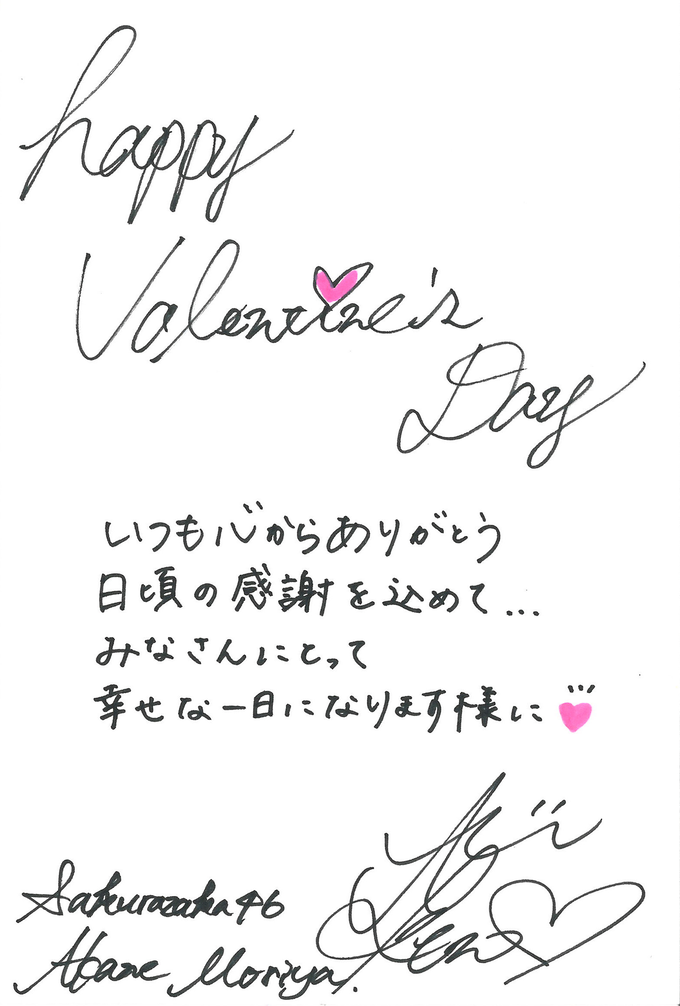 happy
Valentine's
Day
いつも心からありがとう
日頃の感謝を込めて...
みなさんにとって
幸せな一日になります様に
Sakurazaka46
Akane Moriya.